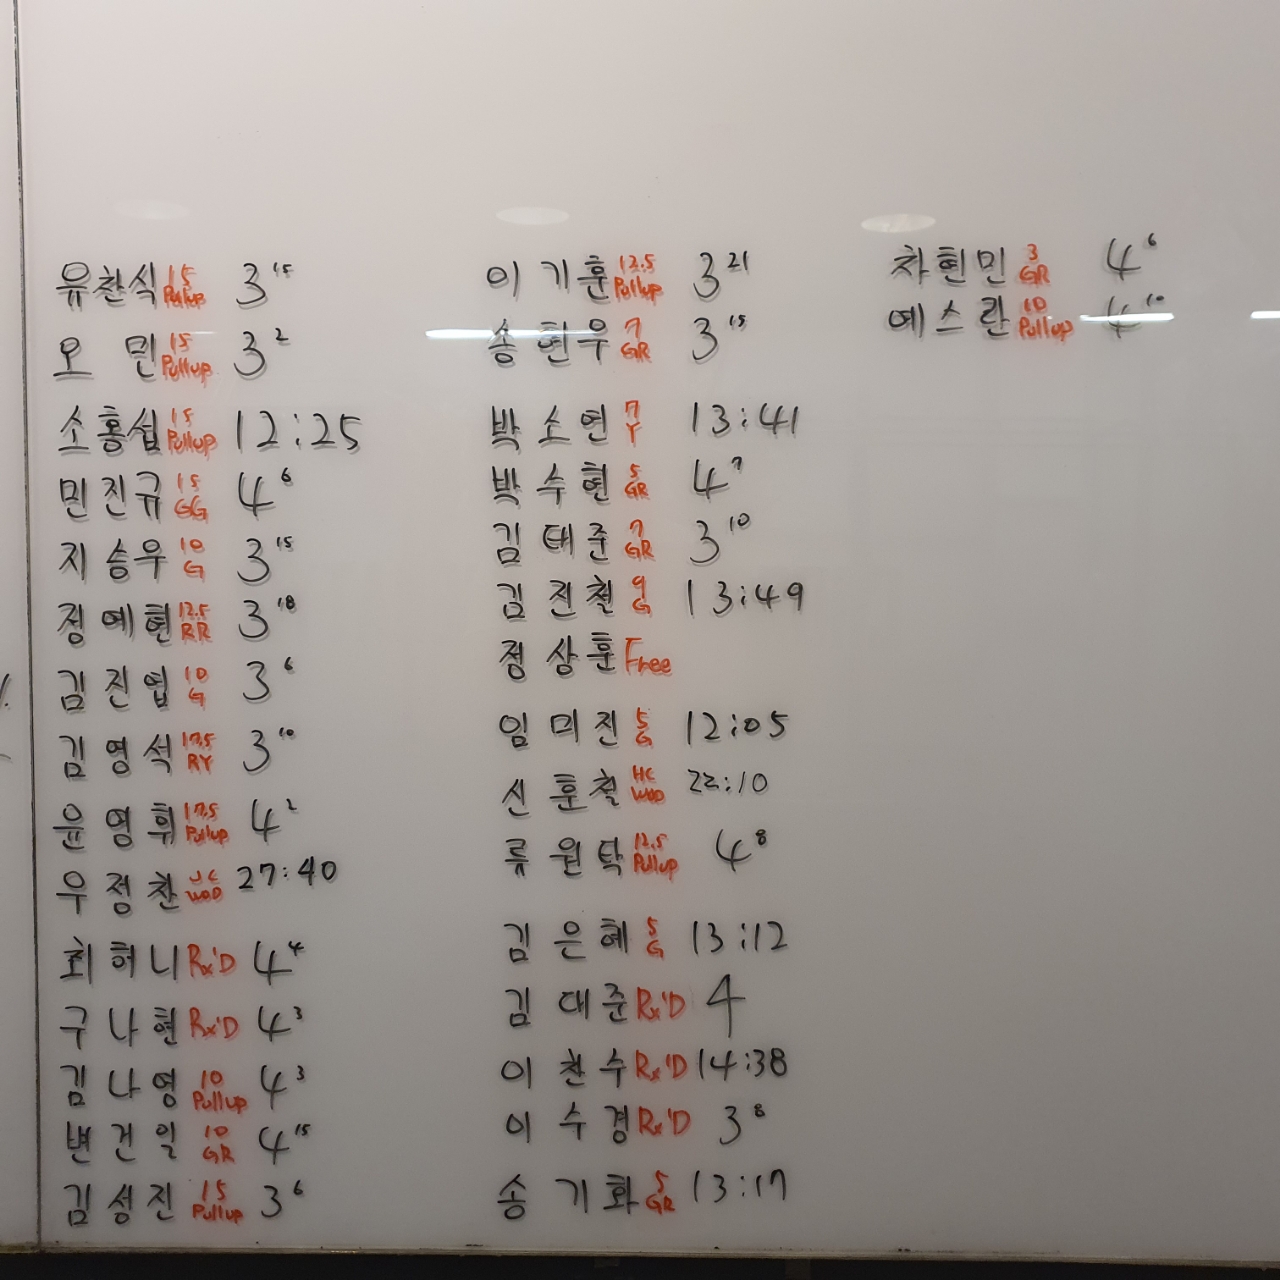 유찬식 15 Pullup 3 15
오 민 15 Pullup 3 2
소홍섭 15 Pullup 12:25
민진규 15 GG 4 6
지승우 10 G 3 15
정예현 12.5 RR 3 18
김진엽 10 G 3 6
김영석 17.5 RY 3 10
윤영휘 17.5 Pullup 4 2
우정찬 WOD 27:40
최허니 Rx'D 4 4
구나현 Rx'D 4 3
김나영 10 Pullup 4 3
변건일 10 GR 4 15
김성진 15 Pullup 3 6
이기훈 12.5 Pullup 3 21
송현우 7 GR 3 15
박소연 7 Y 13:41
박수현 5 GR 4 7
김태준 7 GR 3 10
김진철 9 G 13:49
정상훈 Free
임미진 5 G 12:05
신훈철 HC WOD 22:10
류원탁 12.5 Pullup 4 8
김은혜 5 G 13:12
김대준 Rx'D 4
이찬수 Rx'D 14:38
이수경 Rx'D 3 8
송기화 5 GR 13:17
차현민 3 GR 4 6
예스란 10 Pullup 4 10